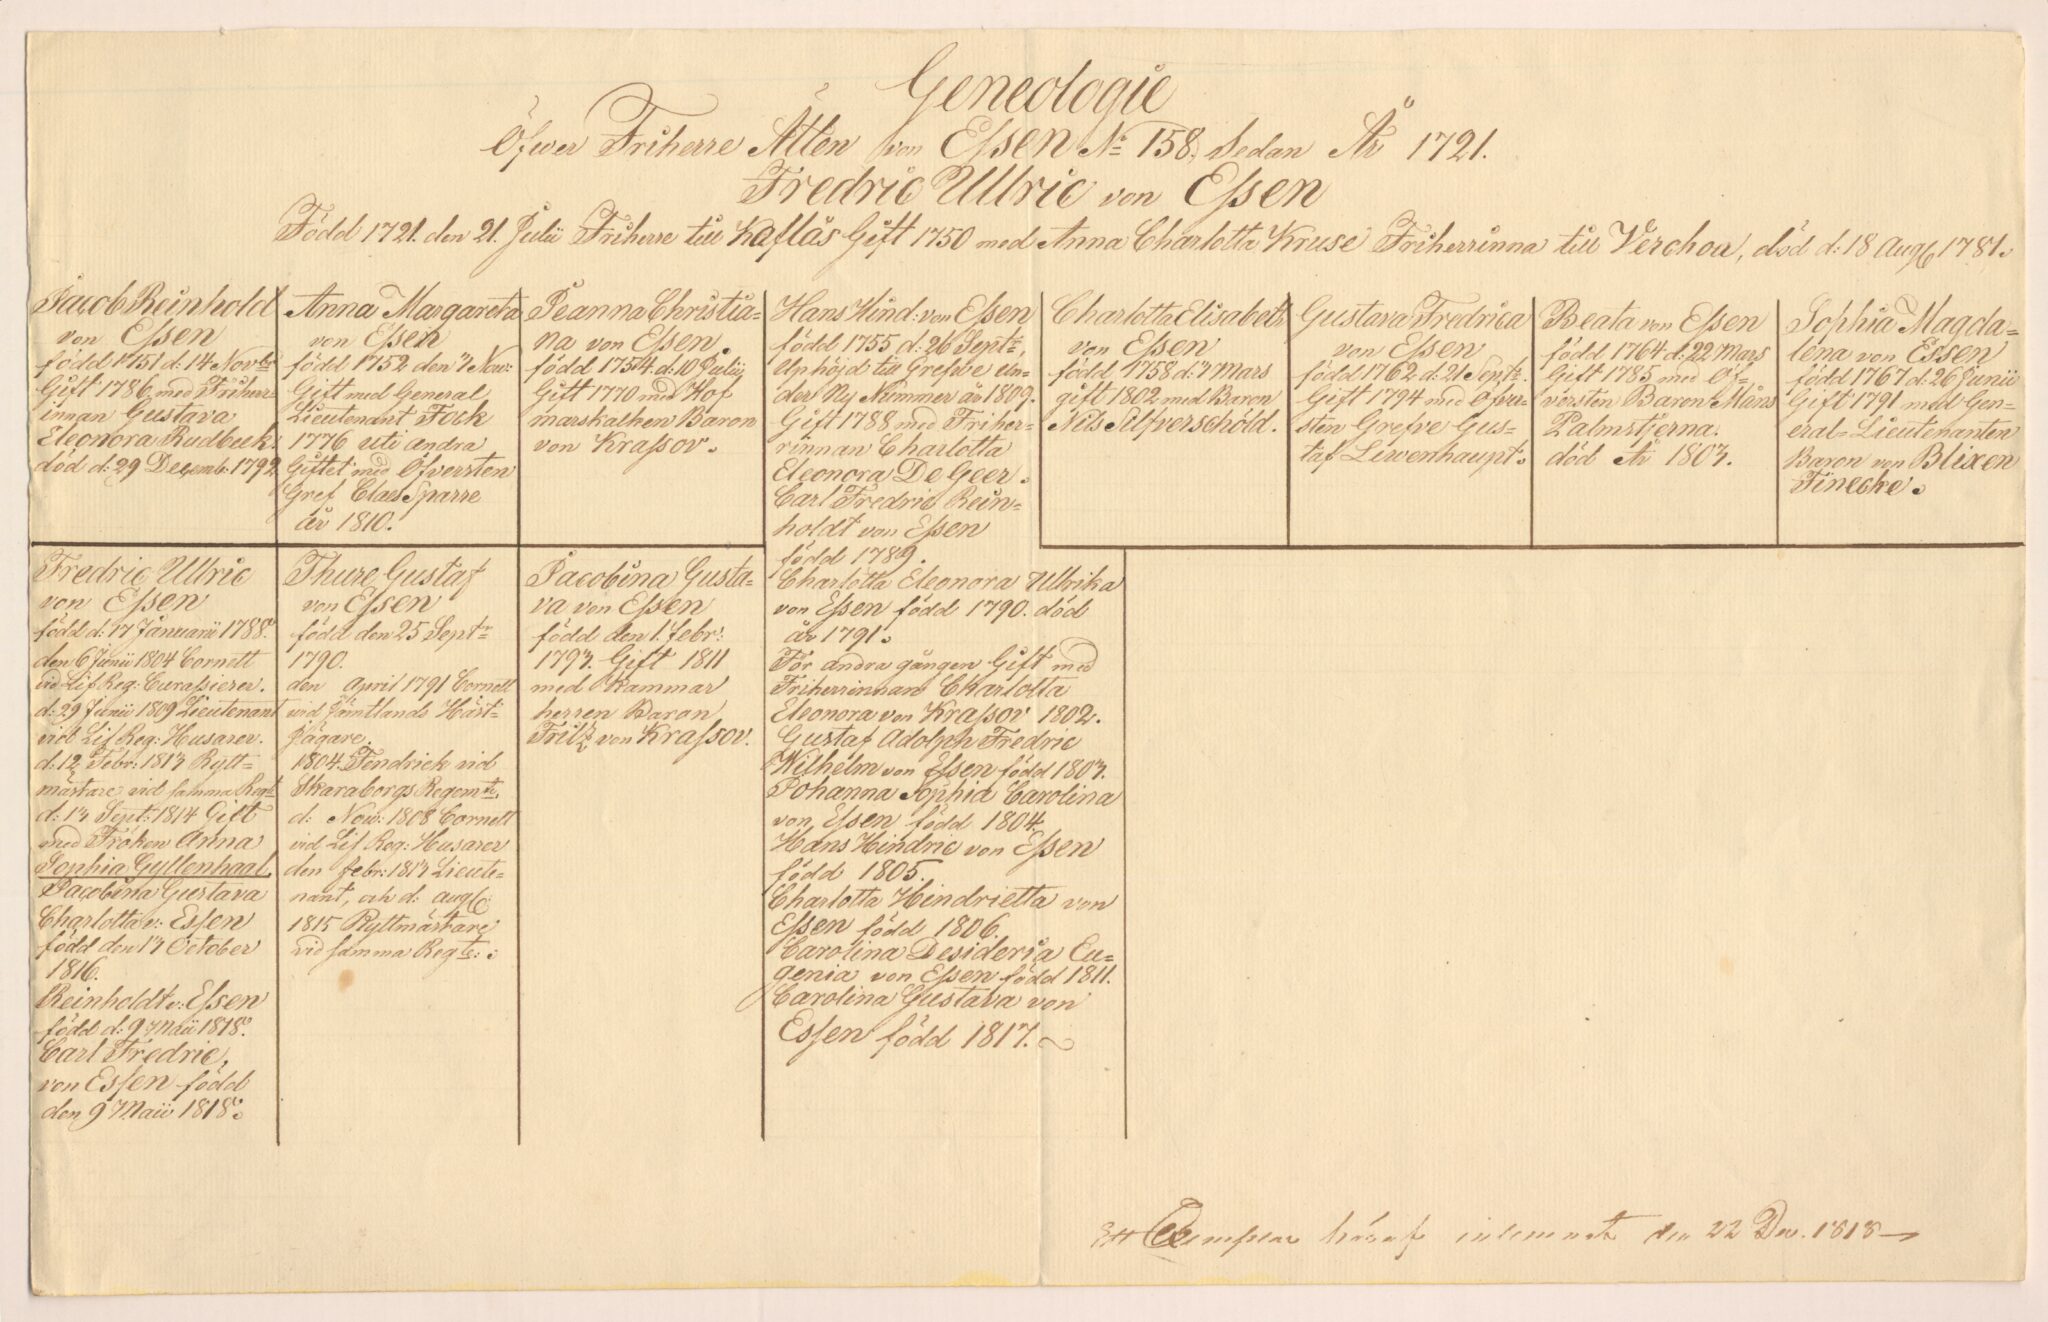 Geneologie
Öfwer Friherre Ätten von Essen No 158, Sedan År 1721.
Fredric Ulric von Essen
Född 1721. den 21. Julii Friherre till Kaflås Gift 1750 med Anna Charlotta Kruse Friherrinna till Verchou, död d: 18 Aug 1781.
Jacob Reinhold
von Essen
född 1751 d: 14 Novbr
Gift 1786 med Friherr
innan Gustava
Eleonora Rudbeck
död d: 29 Decemb: 1792
Anna Margareta
von Essen
född 1752 den 7 Nov:
Gift med General
Lieutenant Fock
1776 uti andra
Giftet med Öfversten
Gref Claes Sparre
år 1810.
Jeanna Christia-
na von Essen
född 1754. d: 10 Julii
Gift 1770 med Hof
marskalken Baron
von Krassov.
Hans Hind: von Essen
född 1755 d: 26 Sept:
uphöjd till Grefve un-
der Ny Nummer år 1809.
Gift 1788 med Friher-
rinnan Charlotta
Eleonora De Geer.
Carl Fredric Rein-
holdt von Essen
född 1789.
Charlotta Eleonora Ulrika
von Essen född 1790. död
år 1791.
För andra gången Gift med
Friherrinnan Charlotta
Eleonora von Krassov 1802.
Gustaf Adolph Fredric
Wilhelm von Essen född 1803.
Johanna Sophia Carolina
von Essen född 1804.
Hans Hindric von Essen
född 1805.
Charlotta Hindrietta von
Essen född 1806.
Carolina Desideria Eu-
genia von Essen född 1811.
Carolina Gustava von
Essen född 1817.
Charlotta Elisabeth
von Essen
född 1758 d: 7 Mars
gift 1802 med Baron
Nils Silfverschöld.
Gustava Fredrica
von Essen
född 1762 d: 21 Sept:
Gift 1794 med Öfver-
sten Grefve Gus-
taf Lewenhaupt.
Beata von Essen
född 1764 d: 22 Mars
Gift 1785 med Öf-
versten Baron Måns
Palmstjerna.
död År 1803.
Sophia Magda-
lena von Essen
född 1767 d: 26 Junii
Gift 1791 med Gen-
eral-Lieutenanten
Baron von Blixen
Finecke.
Fredric Ulric
von Essen
född d: 17 Januarii 1788.
den 6 Junii 1804 Cornett
vid Lif Reg: Curassierer.
d: 29 Junii 1809 Lieutenant
vid Lif Reg: Husarer.
d: 12 Febr: 1813 Rytt-
mästare vid samma Regt
d: 13 Sept: 1814 Gift
med Fröken Anna
Sophia Gyllenhaal.
Jacobina Gustava
Charlotta v: Essen
född den 13 October
1816.
Reinholdt v: Essen
född d: 9 Maii 1818.
Carl Fredric,
von Essen född
den 9 Maii 1818.
Thure Gustaf
von Essen
född den 25 Septr
1790.
den April 1791 Cornett
vid Jämtlands Häst-
Jägare.
1804. Fendrick vid
Skaraborgs Regemte.
d: Nov: 1808 Cornett
vid Lif Reg: Husarer
den febr: 1813 Lieute-
nant, och d: aug:
1815 Ryttmästare
vid samma Regte:
Jacobina Gusta-
va von Essen
född den 1. febr:
1793. Gift 1811
med Kammar
herren Baron
Fritz von Krassov.
Ett Exemplar häraf inlemnat den 22 Dec. 1818